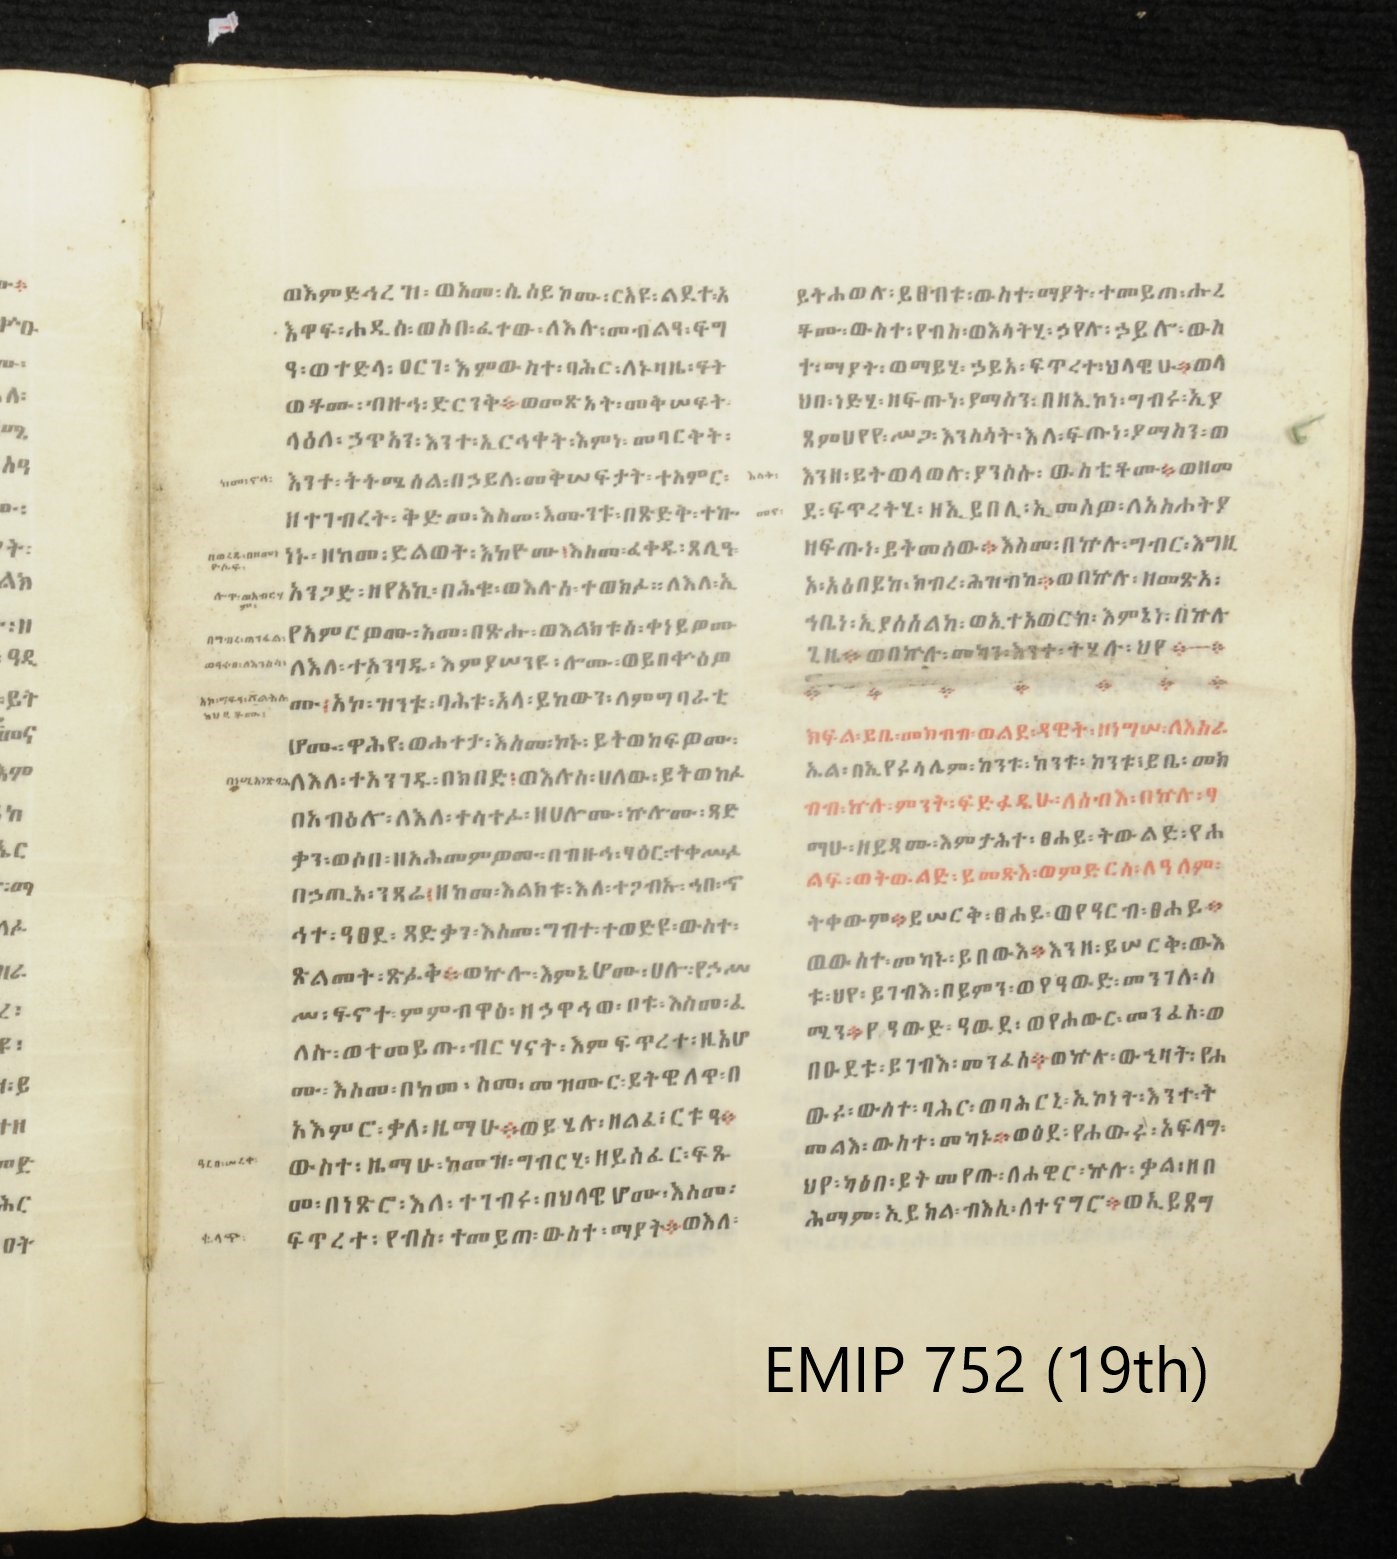 ወእምድኅረዝ፡ ወአመ፡ ሲሳይኮሙ፡ ርእዩ፡ ልደተ፡አ
እዋፍ፡ ሐዲስ፡ ወሶበ፡ ፈተው፡ ለእሉ፡ መብልዓ፡ ፍግ
ዓ፡ ወተድላ፡ ዐርገ፡ እምውስተ፡ ባሕር፡ ለኑዛዜ፡ ፍት
ወቶሙ፡ ብዙኅ፡ ድርንቅ። ወመጽአት፡ መቅሠፍት
ላዕለ፡ ኃጥአን፡ እንተ፡ ኢርኅቀት፡ እምነ፡ መባርቅት፡
እንተ፡ ትትሜሰል፡ በኃይለ፡ መቅሠፍታት፡ ተአምር፡
ዘተገብረት፡ ቅድመ፡ እስመ፡ እሙንቱ፡ በጽድቅ፡ ተኰ
ነኑ፡ ዘከመ፡ ይደልወት፡ እከዮሙ፡ እስመ፡ ፈቀዱ፡ ጸሊዓ
አንጋድ፡ ዘየአኪ፡ በሕቁ፡ ወእሉሰ፡ ተወክፉ። ለእለ፡ ኢ
የአምርዎሙ፡ አመ፡ በጽሑ፡ ወእልክቱሰ፡ ቀነይዎሙ
ለእለ፡ ተአንገዱ፡ እምያሠንዩ፡ ሎሙ፡ ወይበቍዕዎ
ሙ፡ አኮ፡ ዝንቱ፡ ባሕቱ፡ አላ፡ ይከውን፡ ለምግባራቲ
ሆሙ፡ ዋሕየ፡ ወሐተታ፡ እስመ፡ ኮኑ፡ ይትወከፍዎሙ፡
ለእለ፡ ተአንገዱ፡ በክበድ፡ ወእሉሰ፡ ሀለው፡ ይትወከፉ
በአብዕሎ፡ ለእለ፡ ተሳተፉ፡ ዘሀሎሙ፡ ኵሎሙ፡ ጻድ
ቃን፡ ወሶበ፡ ዘአሕመምዎሙ፡ በብዙኅ፡ ፃዕር፡ ተቀሠፉ
በኃጢአ፡ ንጻሬ፡ ዘከመ፡ እልክቱ፡ እለ፡ ተጋብኡ፡ ኀበ፡ ኆ
ኅተ፡ ዓፀደ፡ ጻድቃን፡ እስመ፡ ግብተ፡ ተወድዩ፡ ውስተ፡
ጽልመት፡ ጽፉቅ። ወኵሉ፡ እምኔሆሙ፡ ሀሎ፡ የኃሠ
ሥ፡ ፍኖተ፡ ምምብዋዕ፡ ዘኃዋኅወ፡ ቦቱ፡ እስመ፡ ፈ
ለሱ፡ ወተመይጡ፡ ብርሃናት፡ እምፍጥረተ፡ ዚአሆ
ሙ፡ እስመ፡ በከመ፡ ስመ፡ መዝሙር፡ ይትዌለዋ፡ በ
አእምሮ፡ ቃለ፡ ዜማሁ። ወይሄሉ፡ ዘልፈ፡ ርቱዓ።
ውስተ፡ ዜማሁ፡ ከመዝ፡ ግብርሂ፡ ዘይሰፈር፡ ፍጹ
መ፡ በነጽሮ፡ እለ፡ ተገብሩ፡ በህላዌሆሙ፡ እስመ፡
ፍጥረተ፡ የብስ፡ ተመይጠ፡ ውስተ፡ ማያት። ወእለ፡
ይትሐወሉ፡ ይፀብቱ፡ ውስተ፡ ማያት፡ ተመይጠ፡ ሑረ
ቶሙ፡ ውስተ፡ የብስ፡ ወእሳትሂ፡ ኃየሉ፡ ኃይሎ፡ ውስ
ተ፡ ማያት፡ ወማይሂ፡ ኃይአ፡ ፍጥረተ፡ ህላዌሁ። ወላ
ህበ፡ ነድሂ፡ ዘፍጡነ፡ ያማስን፡ በዘኢኮነ፡ ግብሩ፡ ኢያ
ጸምሀየየ፡ ሥጋ፡ እንስሳት፡ እለ፡ ፍጡነ፡ ያማስን፡ ወ
እንዘ፡ ይትወላወሉ፡ ያንሶሱ፡ ውስቴቶሙ። ወዘመ
ደ፡ ፍጥረትሂ፡ ዘኢይበሊ፡ ኢመሰወ፡ ለአስሐትያ
ዘፍጡነ፡ ይትመሰው። እስመ፡ በኵሉ፡ ግብር፡ እግዚ
ኦ፡ አዕበይከ፡ ክብረ፡ ሕዝብከ። ወበኵሉ፡ ዘመጽአ፡
ኀቤነ፡ ኢያሰስልከ፡ ወኢተአወርከ፡ እምኔነ፡ በኵሉ
ጊዜ። ወበኵሉ፡ መካን፡ እንተ፡ ትሄሉ፡ ህየ።
ክፍል፡ ይቤ፡ መክብብ፡ ወልደ፡ ዳዊት፡ ዘነግሠ፡ ለእስራ
ኤል፡ በኢየሩሳሌም፡ ከንቱ፡ ከንቱ፡ ከንቱ፡ ይቤ፡ መክ
ብብ፡ ኵሉ፡ ምንት፡ ፍድፋዱሁ፡ ለሰብእ፡ በኵሉ፡ ፃ
ማሁ፡ ዘይጻሙ፡ እምታሕተ፡ ፀሐይ፡ ትውልድ፡ የሐ
ልፍ፡ ወትውልድ፡ ይመጽእ፡ ወምድርሰ፡ ለዓለም፡
ትቀውም። ይሠርቅ፡ ፀሐይ፡ ወየዓርብ፡ ፀሐይ።
ወውስተ፡ መካኑ፡ ይበውእ። እንዘ፡ ይሠርቅ፡ ውእ
ቱ፡ ህየ፡ ይገብእ፡ በይምን፡ ወየዓውድ፡ መንገለ፡ ሰ
ሜን። የዓውድ፡ ዓውደ፡ ወየሐውር፡ መንፈስ፡ ወ
በዑደቱ፡ ይገብእ፡ መንፈስ። ወኵሉ፡ ውኂዛት፡ የሐ
ውሩ፡ ውስተ፡ ባሕር፡ ወባሕርኒ፡ ኢኮነት፡ እንተ፡ ት
መልእ፡ ውስተ፡ መካኑ። ወዕደ፡ የሐውሩ፡ አፍላግ፡
ህየ፡ ካዕበ፡ ይትመየጡ፡ ለሐዊር፡ ኵሉ፡ ቃል፡ ዘበ
ሕማም፡ ኢይክል፡ ብእሲ፡ ለተናግሮ። ወኢይጸግ
EMIP 752 (19th)